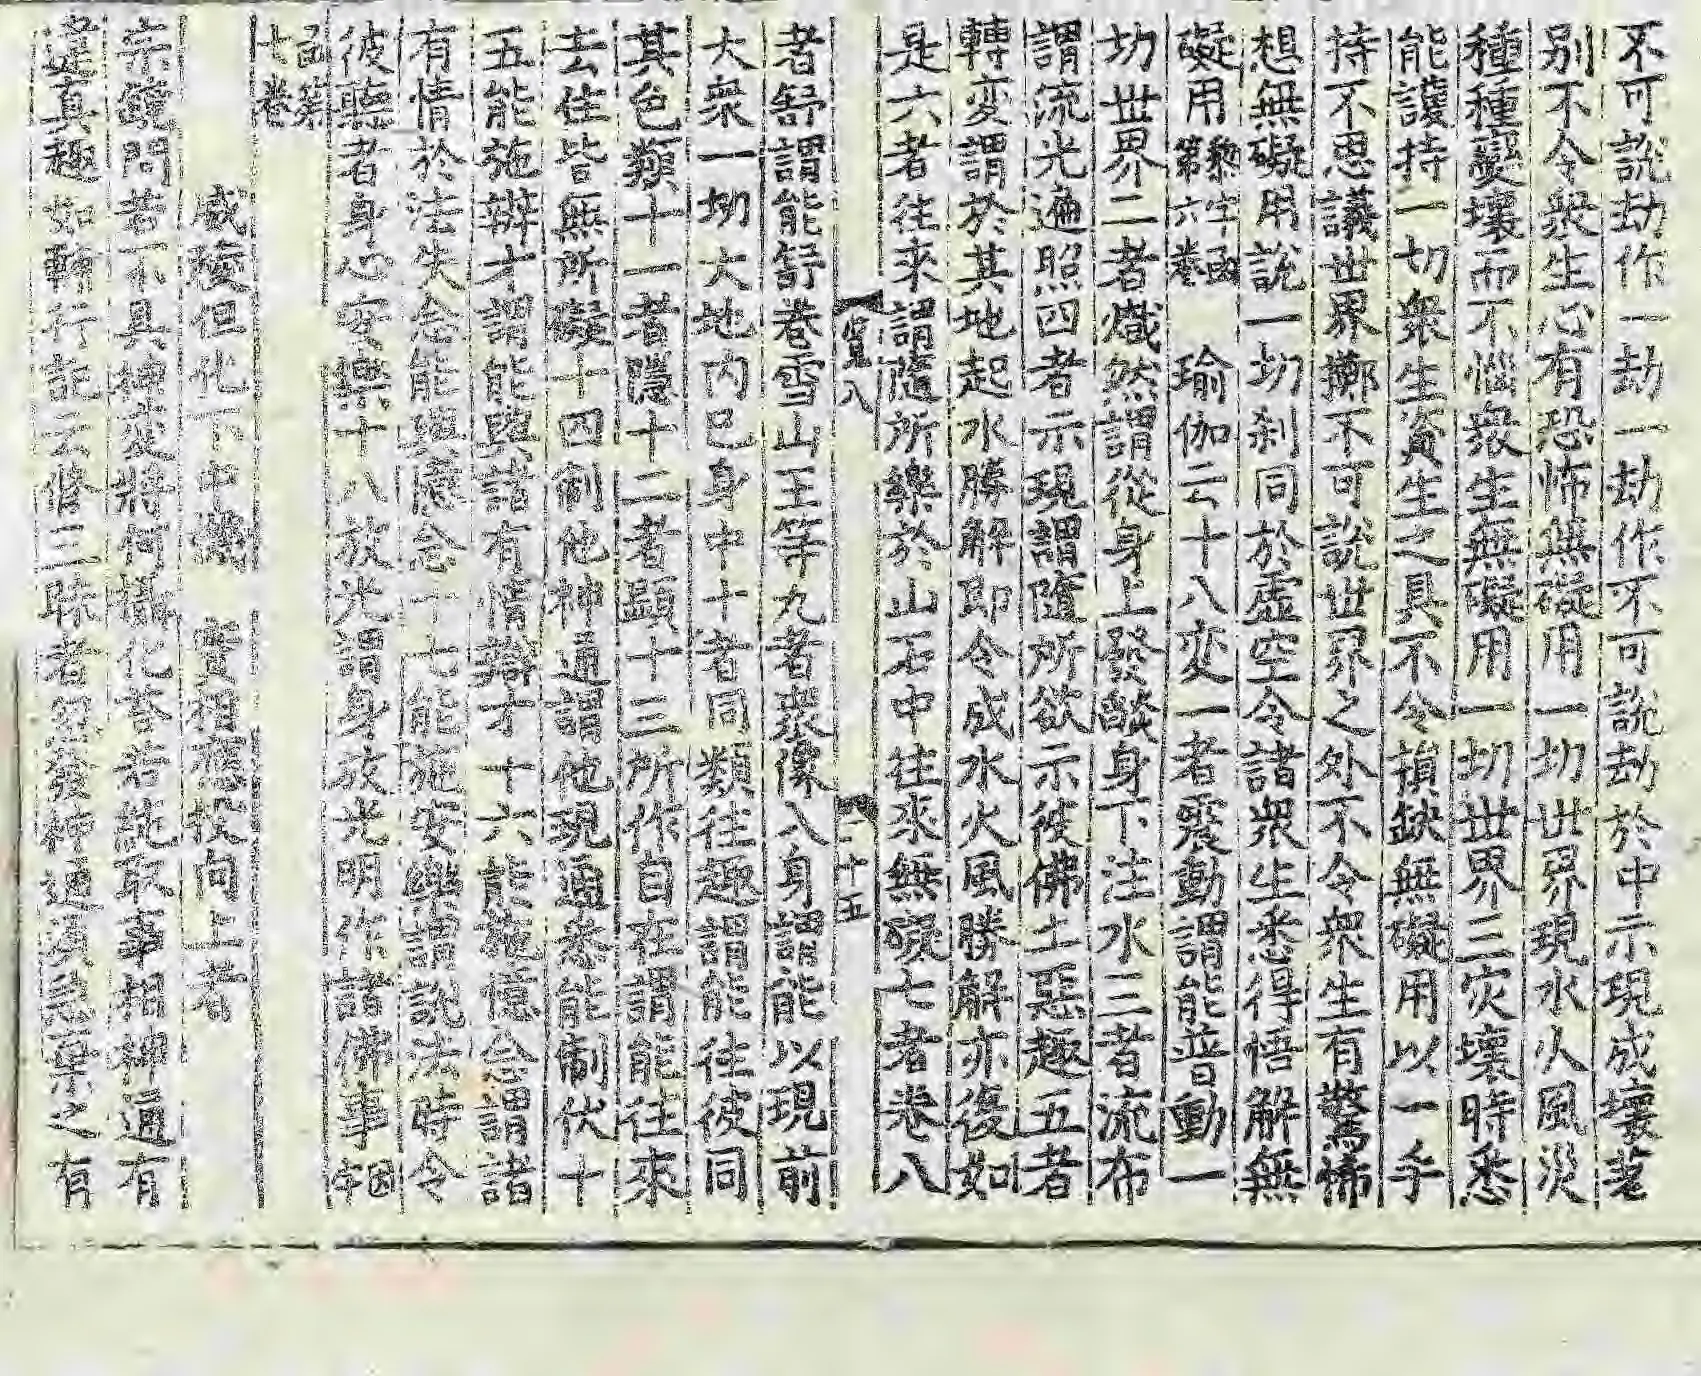 不可說劫作一劫一劫作不可說劫於中示現成壞差
別不令衆生心有恐怖無礙用一切世界現水火風災
種種變壞而不惱衆生無礙用一切世界三灾壞時悉
能護持一切衆生資生之具不令損缺無礙用以一手
持不思議世界擲不可說世界之外不令衆生有驚怖
想無礙用說一切刹同於虛空令諸衆生悉得悟解無
礙用 第六卷 瑜伽云十八変一者震動謂能普動一
切世界二者熾然謂從身上發燄身下注水三者流布
謂流光遍照四者示現謂隨所欲示彼佛土惡趣五者
轉変謂於其地起水勝解即令成水火風勝解亦復如
是六者往來謂隨所樂於山石中往來無礙七者卷八
八 二十五
者舒謂能舒卷雪山王等九者衆像八身謂能以現前
大衆一切大地內已身中十者同類往趣謂能往彼同
其色類十一者隱十二者顯十三所作自在謂能往來
去住皆無所礙十四制他神通謂他現通悉能制伏十
五能施辨才謂能與諸有情辯才十六能施憶念謂諸
有情於法失念能與憶念十七能施安樂謂說法時令
彼聽者身心安樂十八放光謂身放光明作諸佛事
函第七卷
威 但化下中機 實相應投向上者
宗鏡問若不具神変將何攝化荅若能取事相神通有
違真趣如輔行記云修三昧者忽發神通須急棄之有